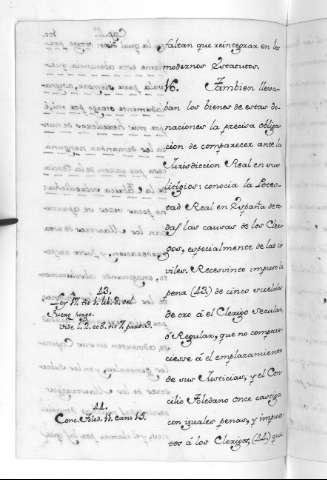 faltan que reintegrar en los
modernos Estatutos.
16. Tambien lleva-
ban los bienes de estas do-
naciones la precisa obliga-
cion de comparecer ante la
Jurisdiccion Real en sus
litigios: conocia la Potes-
tad Real en España de to-
das las causas de los Cleri-
gos, especialmente de las ci-
viles. Recesvinto impuso la
pena (13) de cinco escudos
de oro á el Clerigo secular,
ó Regular, que no compare-
ciesse á el emplazamiento
de sus Justicias, y el Con-
cilio Toledano once castiga
con iguales penas, y impue-
tos á los Clerigos, (14) que
13.
Ley 17. tit. 1. lib. 2. del
Fuero Juzgo.
14.
Conc. Toled. 11. Cano 15.